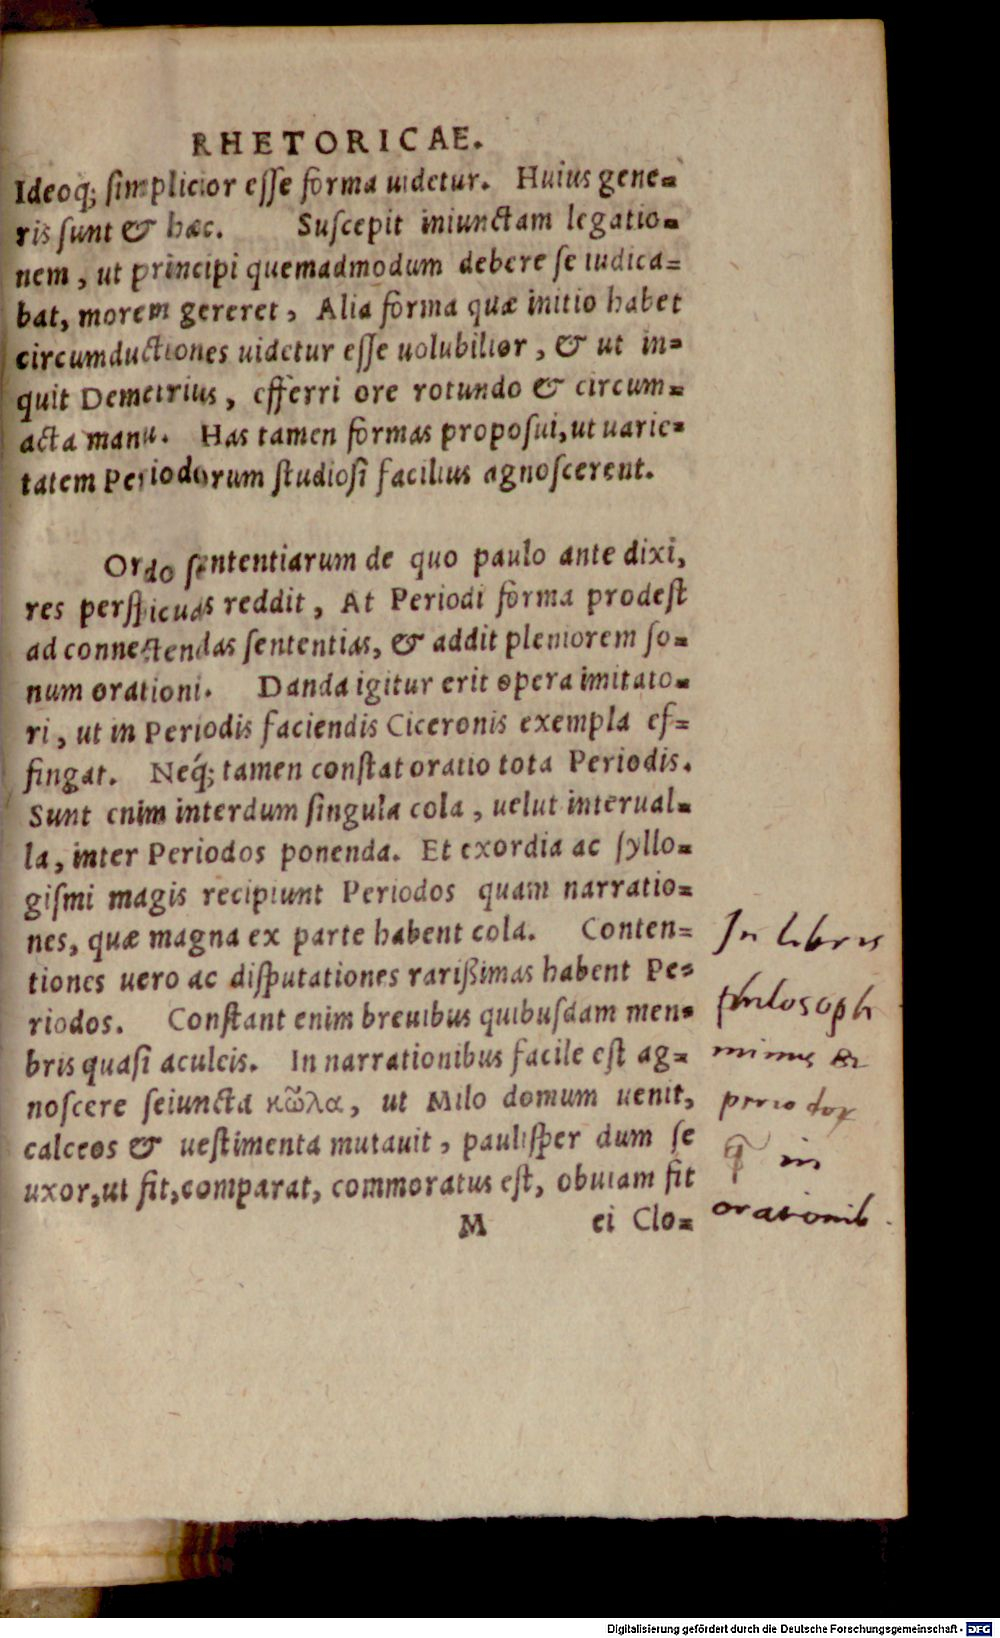 RHETORICAE.
Ideoq́; simplicior esse forma uidetur. Huius gene-
ris sunt & hæc. Suscepit iniunctam legatio-
nem, ut principi quemadmodum debere se iudica-
bat, morem gereret, Alia forma quæ initio habet
circumductiones uidetur esse uolubilior, & ut in-
quit Demetrius, efferri ore rotundo & circum-
acta manu. Has tamen formas proposui, ut uarie-
tatem Periodorum studiosi facilius agnoscerent.
Ordo sententiarum de quo paulo ante dixi,
res perspicuas reddit, At Periodi forma prodest
ad connectendas sententias, & addit pleniorem so-
num orationi. Danda igitur erit opera imitato-
ri, ut in Periodis faciendis Ciceronis exempla ef-
fingat. Neq́; tamen constat oratio tota Periodis.
Sunt enim interdum singula cola, uelut interual-
la, inter Periodos ponenda. Et exordia ac syllo-
gismi magis recipiunt Periodos quam narratio-
nes, quæ magna ex parte habent cola. Conten-
tiones uero ac disputationes rarißimas habent Pe-
riodos. Constant enim breuibus quibusdam mem-
bris quasi aculeis. In narrationibus facile est ag-
noscere seiuncta κῶλα, ut Milo domum uenit,
calceos & uestimenta mutauit, paulisper dum se
uxor, ut fit, comparat, commoratus est, obuiam fit
M ei Clo-
In libris
philosoph
minus
in
orationib
Digitalisierung gefördert durch die Deutsche Forschungsgemeinschaft - DFG